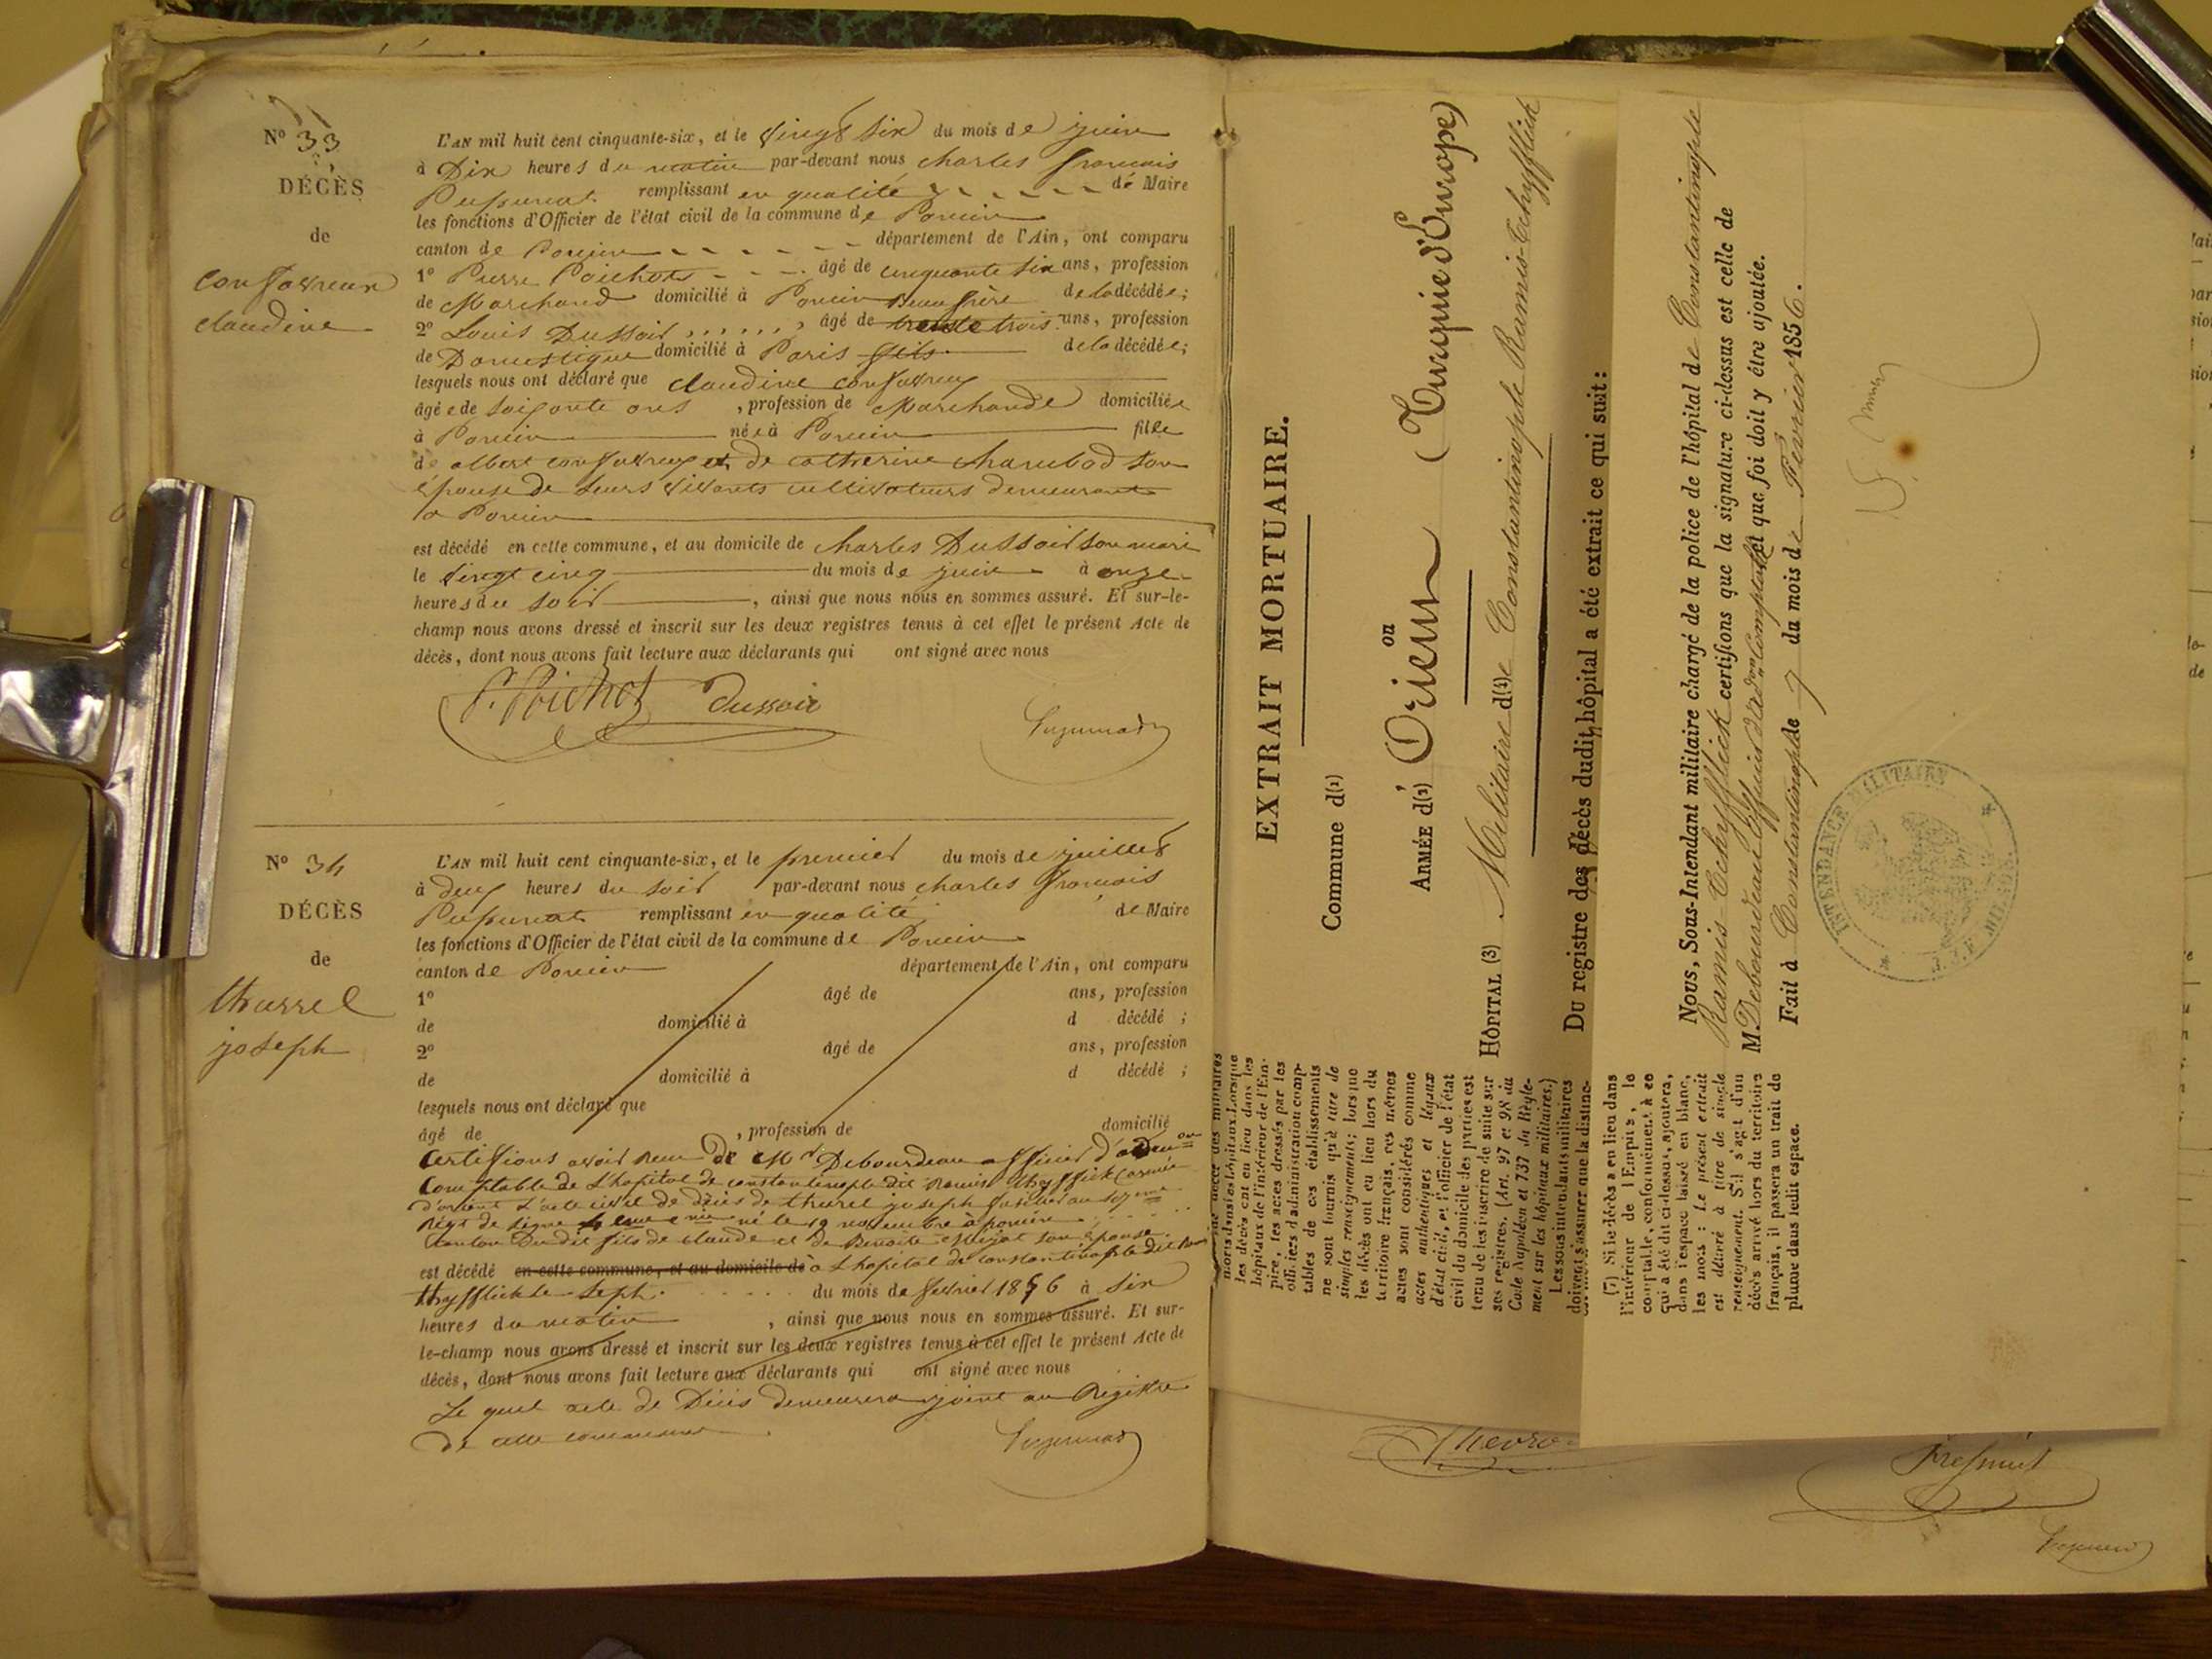 N° 33
DÉCÈS
de
Confavreux
claudine
L'AN mil huit cent cinquante-six, et le vingt six du mois de juin
à Dix heures du matin par-devant nous charles francois
remplissant en qualité de Maire
les fonctions d'Officier de l'état civil de la commune de Poncin
canton de Poncin département de l'Ain, ont comparu
1° Pierre Poichot âgé de cinquante six ans, profession
de Marchand domicilié à Poncin Beau frère de la décédée;
2° Louis Dussoir âgé de trente trois ans, profession
de Domestique domicilié à Paris fils de la décédée;
lesquels nous ont déclaré que claudine confavreux
âgée de soixante ans, profession de Marchande domiciliée
à Poncin née à Poncin fille
de albert confavreux et de catherine chambod son
épouse de leurs vivants cultivateurs demeurant
à Poncin
est décédé en cette commune, et au domicile de charles Dussoir son mari
le vingt cinq du mois de juin à onze
heures du soir, ainsi que nous nous en sommes assuré. Et sur-le-
champ nous avons dressé et inscrit sur les deux registres tenus à cet effet le présent Acte de
décès, dont nous avons fait lecture aux déclarants qui ont signé avec nous
P. Poichot Dussoir
N° 34
DÉCÈS
de
thurrel
joseph
L'AN mil huit cent cinquante-six, et le premier du mois de juillet
à deux heures du soir par-devant nous charles francois
remplissant en qualité de Maire
les fonctions d'Officier de l'état civil de la commune de Poncin
canton de Poncin département de l'Ain, ont comparu
1° âgé de ans, profession
de domicilié à d décédé;
2° âgé de ans, profession
de domicilié à d décédé;
lesquels nous ont déclaré que
âgé de, profession de domicilié
Certifions avoir reçu de Mr Debourdeau officier d'adon
Comptable de l'hopital de constantinople dit Ramis tchyfflick (armée
d'orient l'acte civil de décès de thurrel joseph fusilier au
Régt de ligne né le 19 novembre à poncin
canton du dit fils de claude et de Benoite son épouse
est décédé en cette commune, et au domicile de à l'hopital de constantinople dit Ramis
tchyfflick le sept du mois de fevrier 1856 à six
heures du matin, ainsi que nous nous en sommes assuré. Et sur-
le-champ nous avons dressé et inscrit sur les deux registres tenus à cet effet le présent Acte de
décès, dont nous avons fait lecture aux déclarants qui ont signé avec nous
Le quel acte de Décès demeurera joint au Registre
de cette commune
EXTRAIT MORTUAIRE.
Commune d(1)
ou
ARMÉE d(2)'Orient (Turquie d'Europe)
HÔPITAL (3) Militaire d(4)e Constantinople Ramis-Tchyfflick
Du registre des décès dudit hôpital a été extrait ce qui suit:
les décès ont eu lieu dans les
hôpitaux de l'intérieur de l'Em-
pire, les actes dressés par les
officiers d'administration comp-
tables de ces établissements
ne sont fournis qu'à titre de
simples renseignements; lorsque
les décès ont eu lieu hors du
territoire français, ces mêmes
actes sont considérés comme
actes authentiques et légaux
d'état civil, et l'officier de l'état
civil du domicile des parties est
tenu de les inscrire de suite sur
ses registres. (Art. 97 et 98 du
Code Napoléon et 737 du Règle-
ment sur les hôpitaux militaires.)
Les sous-intendants militaires
doivent s'assurer que la distinc-
Nous, Sous-Intendant militaire chargé de la police de l'hôpital de Constantinople
Ramis-Tchyfflick certifions que la signature ci-dessus est celle de
M. Debourdeau Officier d'adon Comptable et que foi doit y être ajoutée.
Fait à Constantinople 7 du mois de Fevrier 1856.
INTENDANCE MILITAIRE
(7) Si le décès a eu lieu dans
l'intérieur de l'Empire, le
comptable, conformément à ce
qui a été dit ci-dessus, ajoutera,
dans l'espace laissé en blanc,
les mots: Le présent extrait
est délivré à titre de simple
renseignement. S'il s'agit d'un
décès arrivé hors du territoire
français, il passera un trait de
plume dans ledit espace.